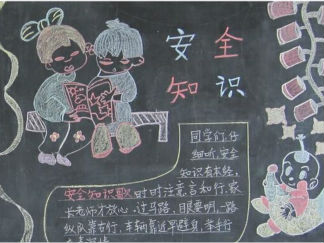 安全
知识
同学们,仔
细听,安全
知识有本经,
安全知识歌 时时注意言和行,家
长老师才放心,过马路,眼要明,一路
纵队靠右行,车辆靠近早避身,举手行